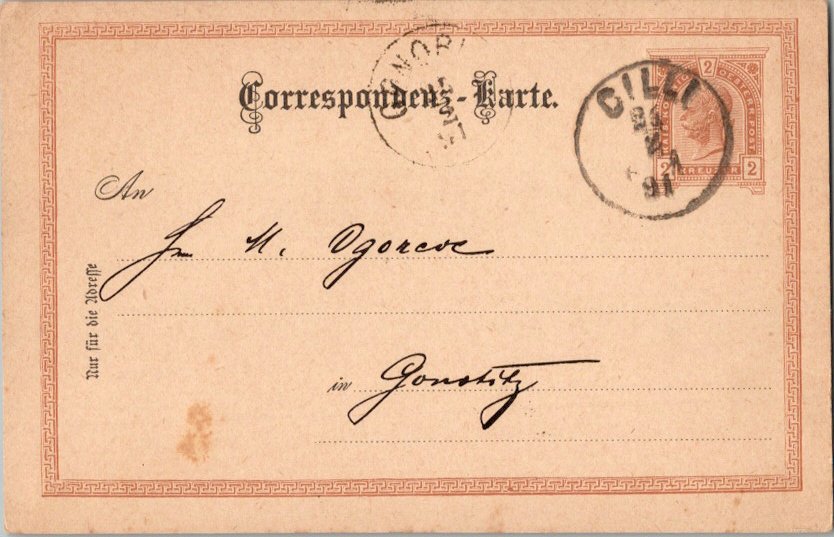 Correspondenz-Karte.
CILLI
91
2
KAIS. KÖNIGL. OESTERR. POST.
2 KREUZER 2
An
M. Ogoreve
Nur für die Adresse
in Gonobitz